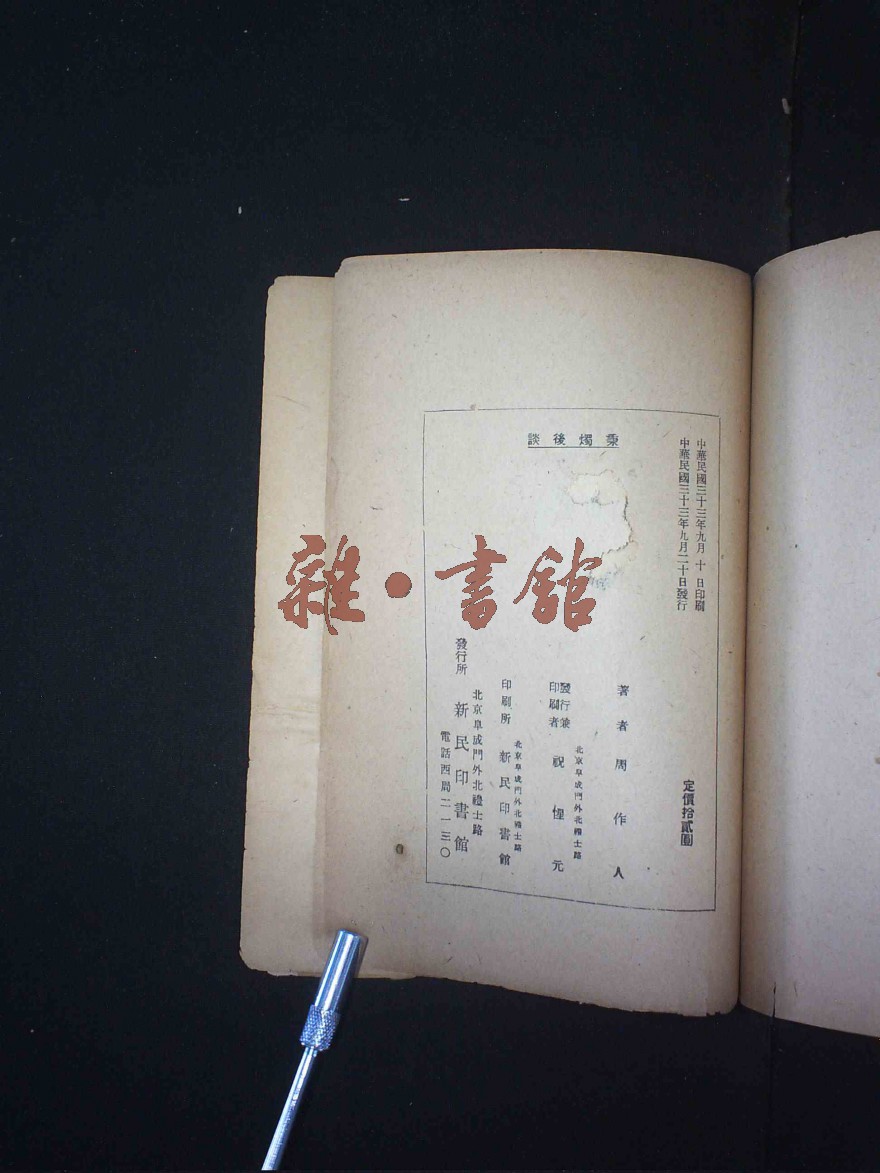 中華民國三十三年九月 十 日印刷
中華民國三十三年九月二十日發行
秉燭後談
定價拾貳圓
著者 周作人
發行兼印刷者 祝惺元
北京阜成門外北禮士路
印刷所 新民印書館
北京阜成門外北禮士路
發行所 新民印書館
北京阜成門外北禮士路
電話西局二一三〇
雜·書館